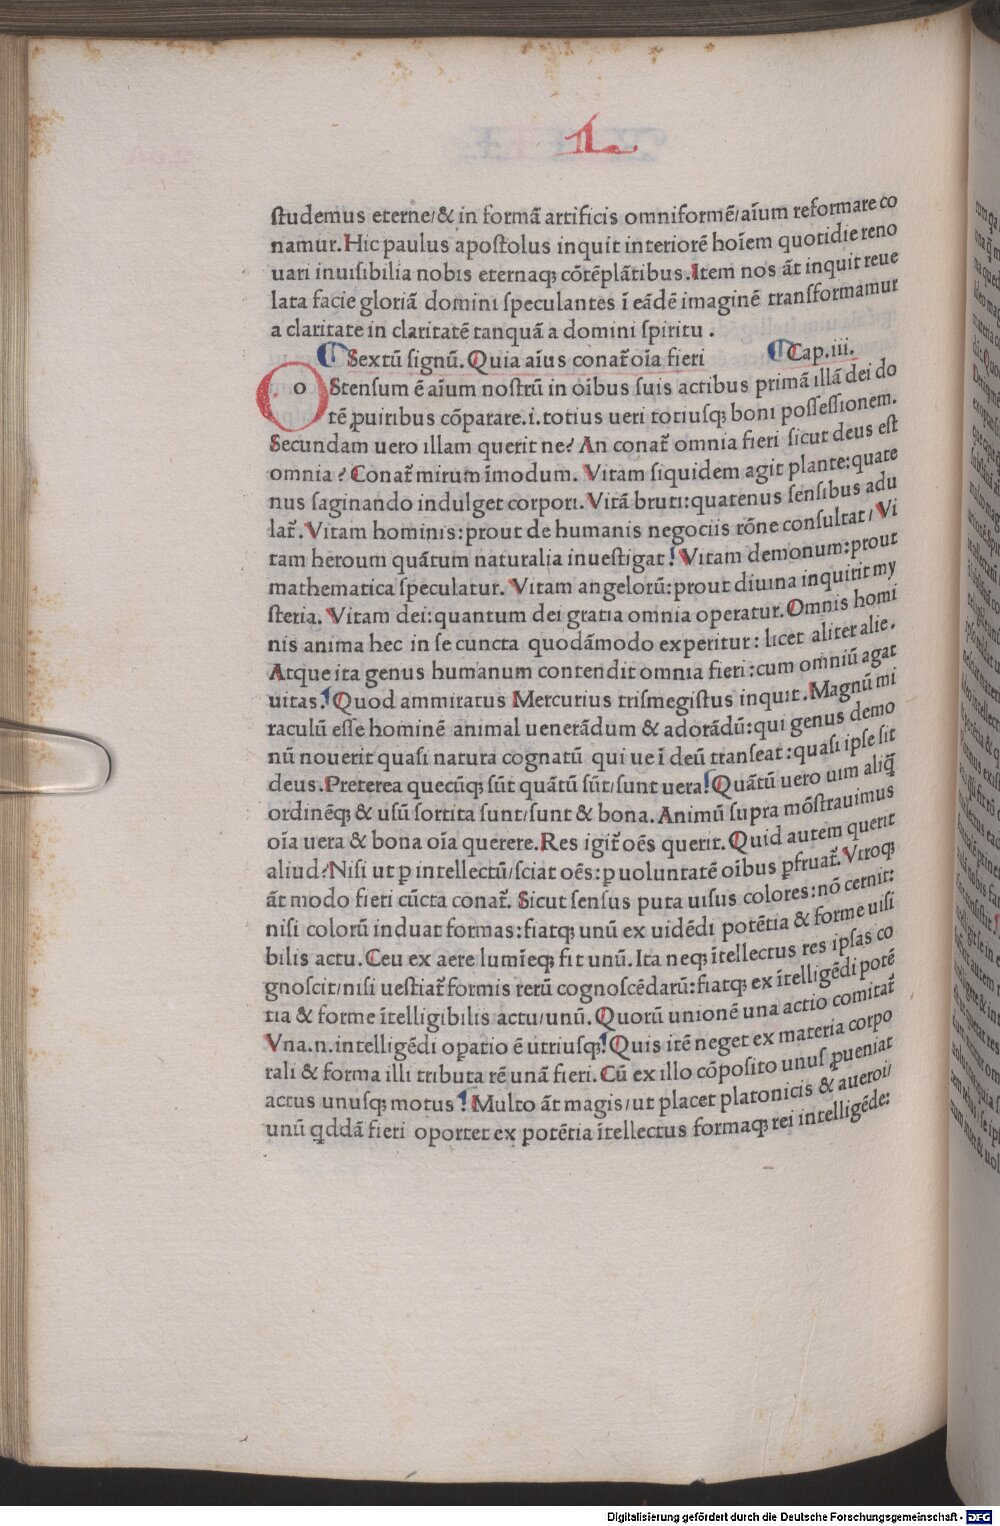 L.
ſtudemus eterne/& in formā artificis omniformē/aīum reformare co
namur.Hic paulus apoſtolus inquit interiorē hoīem quotidie reno
uari inuiſibilia nobis eternaqꝫ cōtēplātibus.Item nos āt inquit reue
lata facie gloriā domini ſpeculantes ī eādē imaginē tranſformamur
a claritate in claritatē tanquā a domini ſpiritu .
Sextū ſignū. Quia aīus conat̄ oīa fieri Cap.iii.
oStenſum ē aīum noſtrū in oībus ſuis actibus primā illā dei do
tē ꝓuiribus cōparare.i.totius ueri totiuſqꝫ boni poſſeſſionem.
Secundam uero illam querit ne? An conat̄ omnia fieri ſicut deus eſt
omnia? Conat̄ mirum īmodum. Vitam ſiquidem agit plante:quate
nus ſaginando indulget corpori. Vitā bruti:quatenus ſenſibus adu
lat̄. Vitam hominis:prout de humanis negociis rōne conſultat/ Vi
tam heroum quātum naturalia inueſtigat! Vitam demonum:prout
mathematica ſpeculatur. Vitam angelorū:prout diuina inquirit my
ſteria. Vitam dei:quantum dei gratia omnia operatur.Omnis homi
nis anima hec in ſe cuncta quodāmodo experitur: licet aliter alie.
Atque ita genus humanum contendit omnia fieri:cum omniū agat
uitas.Quod ammiratus Mercurius triſmegiſtus inquit.Magnū mi
raculū eſſe hominē animal uenerādum & adorādū:qui genus demo
nū nouerit quaſi natura cognatū qui ue ī deū tranſeat:quaſi ipſe ſit
deus.Preterea quecūqꝫ ſūt quātū ſūt/ſunt uera!Quātū uero uim aliq̄
ordinēqꝫ & uſū ſortita ſunt/ſunt & bona. Animū ſupra mōſtrauimus
oīa uera & bona oīa querere.Res igit̄ oēs querit. Quid autem querit
aliud?Niſi ut ꝑ intellectū/ſciat oēs:ꝑ uoluntatē oībus ꝑfruat̄. Vtroqꝫ
āt modo fieri cūcta conat̄. Sicut ſenſus puta uiſus colores:nō cernit:
niſi colorū induat formas:fiatqꝫ unū ex uidēdi potētia & forme uiſi
bilis actu.Ceu ex aere lumīeqꝫ fit unū.Ita neqꝫ ītellectus res ipſas co
gnoſcit/niſi ueſtiat̄ formis rerū cognoſcēdarū:fiatqꝫ ex ītelligēdi potē
tia & forme ītelligibilis actu/unū. Quorū unionē una actio comitat̄
Vna.n.intelligēdi oꝑatio ē utriuſqꝫ!Quis itē neget ex materia corpo
rali & forma illi tributa rē unā fieri.Cū ex illo cōpoſito unuſ ꝓueniat
actus unuſqꝫ motus? Multo āt magis/ut placet platonicis & aueroi/
unū qddā fieri oportet ex potētia ītellectus formaqꝫ rei intelligēde:
Digitalisierung gefördert durch die Deutsche Forschungsgemeinschaft - DFG